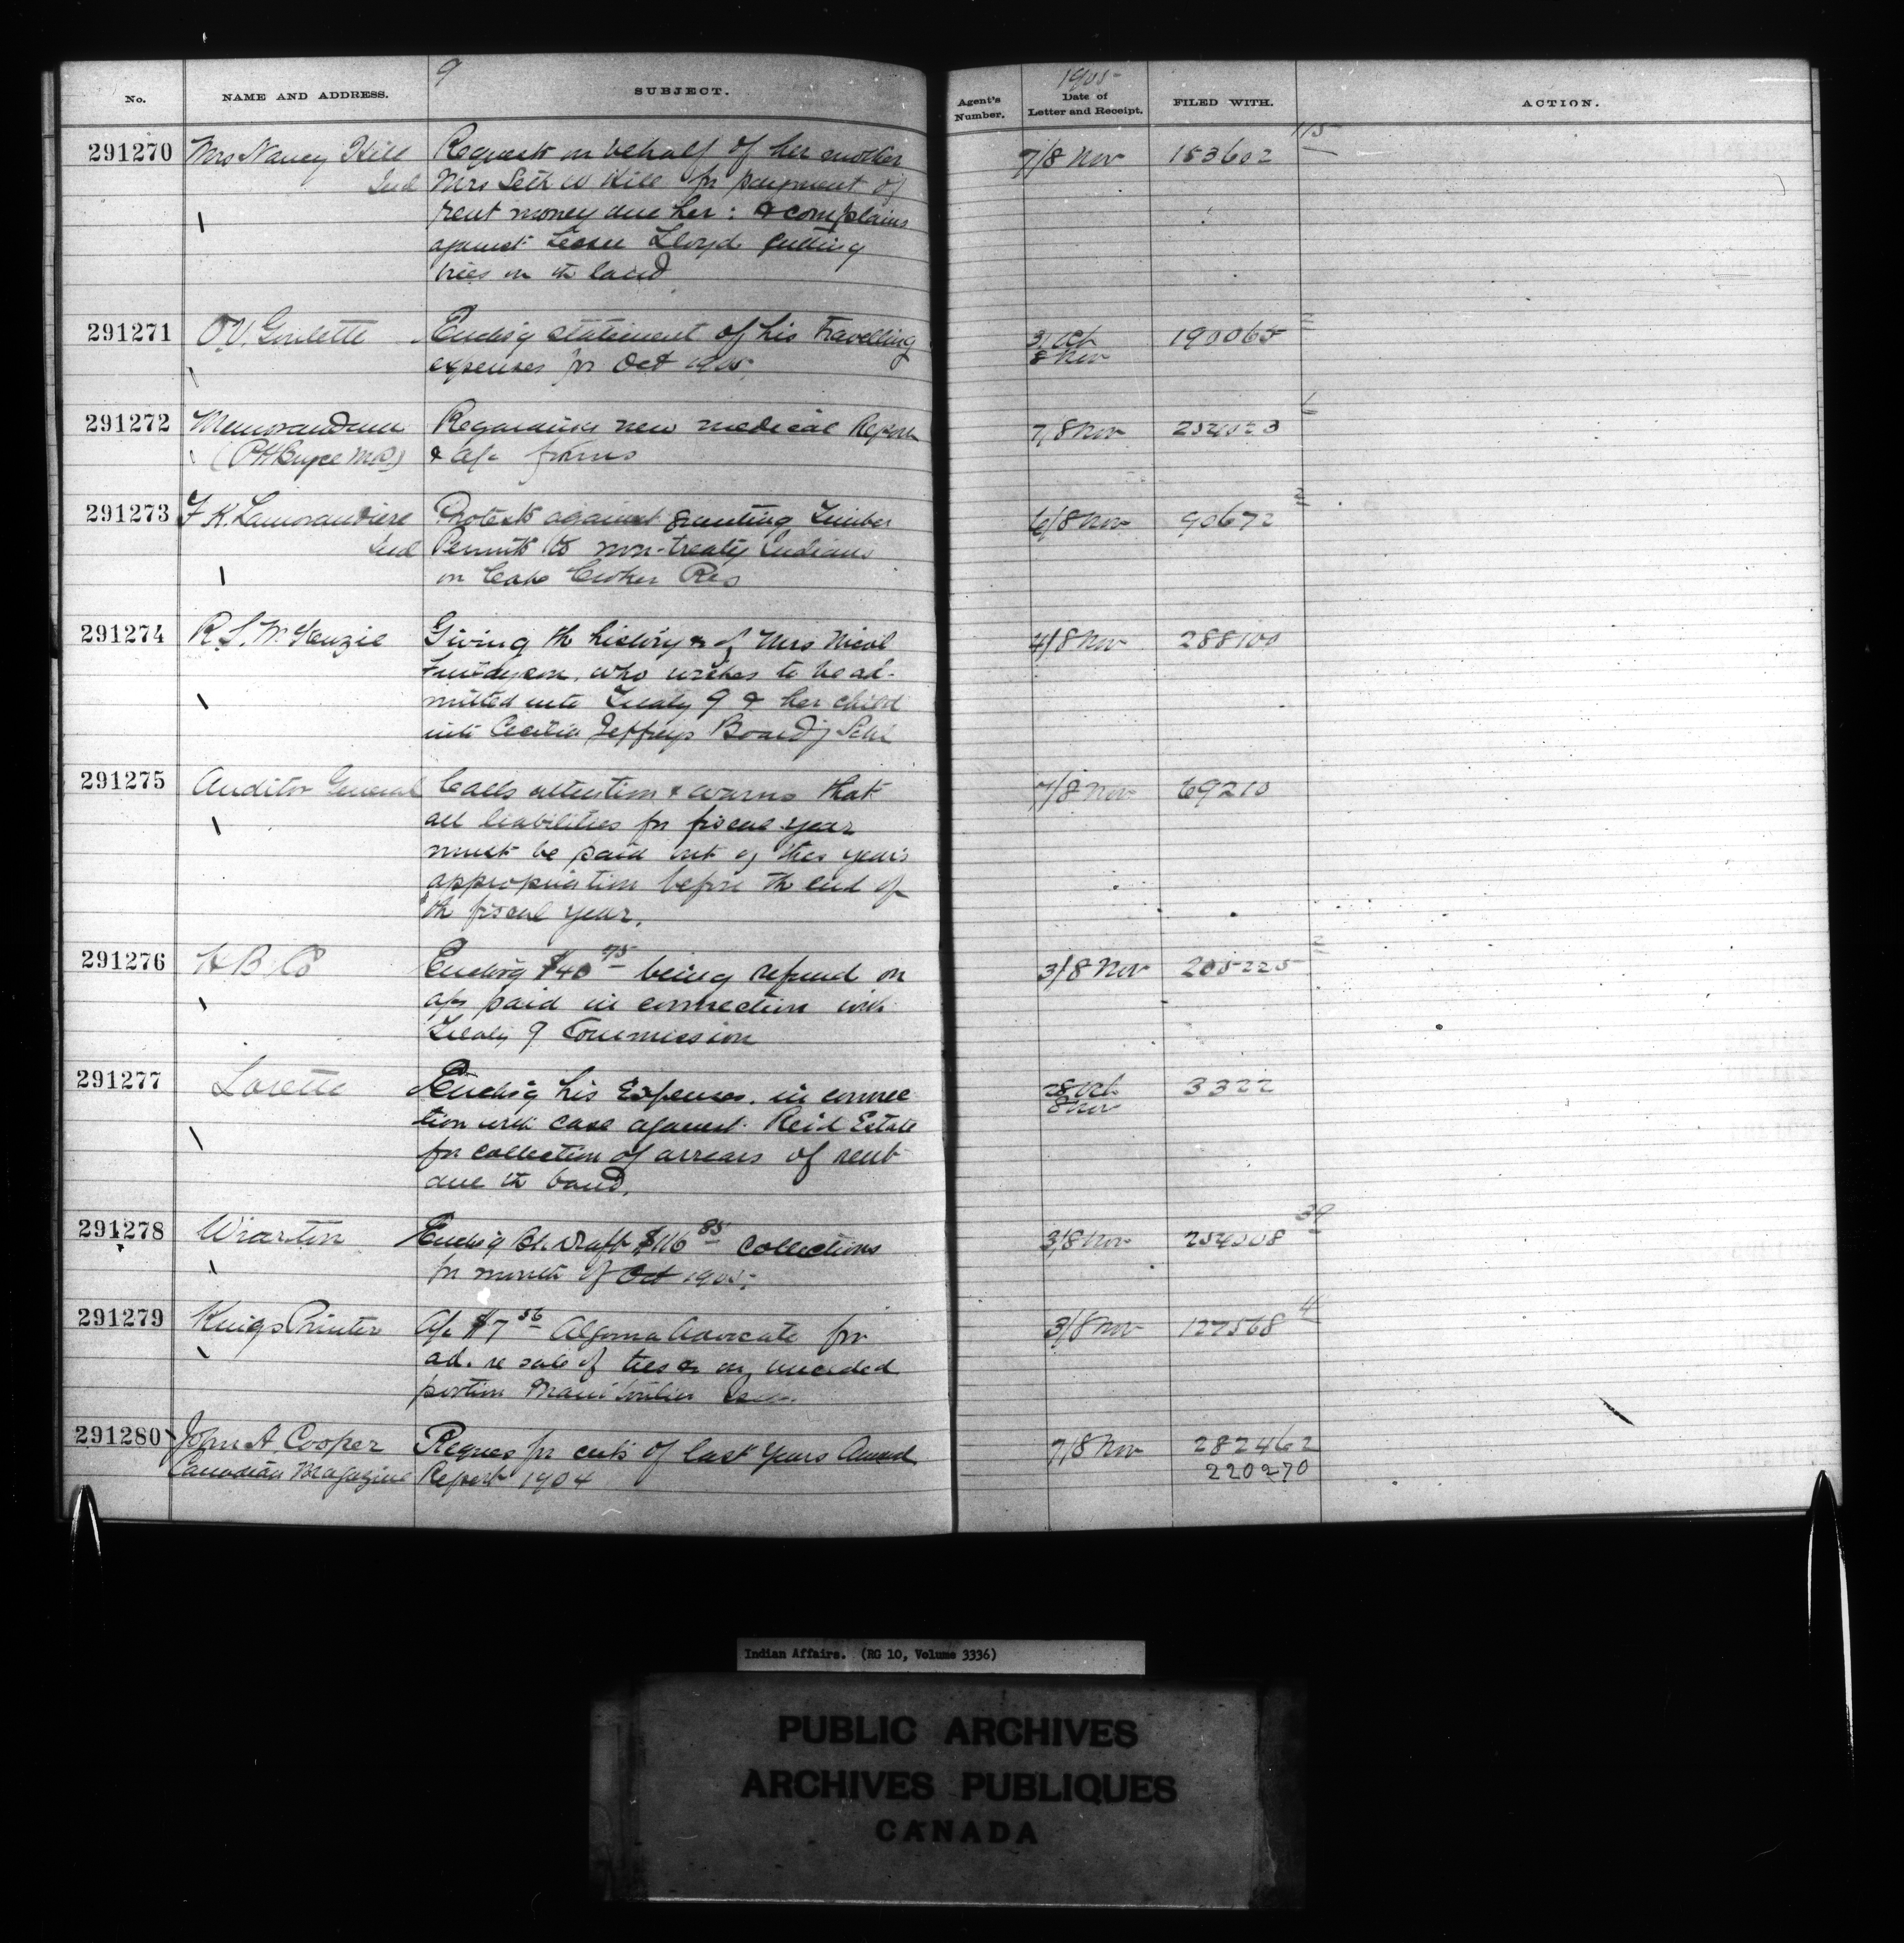 9
1905
No.
NAME AND ADDRESS.
SUBJECT.
Agent's Number.
Date of Letter and Receipt.
FILED WITH.
ACTION.
291270 Mrs Nancy Hill Requests on behalf of her mother 7/8 Nov 153602 115
Ind Mrs Seth W Hill for payment of
rent money due her: & complains
against Lessee Lloyd cutting
trees on th land
291271 O.V. Goulette Enclos'g statement of his Travelling 31 Oct 190065
expenses for Oct 1905. 8 Nov
291272 Memorandum Regarding new medical Report 7/8 Nov 254023
(PH Bryce M.D.) & a/c forms
291273 F K. Lamorandiere Protests against granting Timber 6/8 Nov 90672
Ind Permits to non-treaty Indians
on Cape Croker Res
291274 R.S. McKenzie Giving th history & of Mrs Nicol 4/8 Nov 288100
who wishes to be ad-
mitted into Treaty 9 & her child
into Cecilia Jeffreys Board'g Schl
291275 Auditor General Calls attention & warns that 7/8 Nov 69210
all liabilities for fiscal year
must be paid out of this year's
appropriation before th end of
th fiscal year.
291276 H B Co Enclos'g $40 75 being refund on 3/8 Nov 205225
a/cs paid in connection with
Treaty 9 Commission
291277 Lorette Enclos'g his Expenses in connec 28 Oct 3322
tion with case against Reid Estate 8 Nov
for collection of arrears of rent
due th band.
291278 Wiarton Enclos'g Bk Draft $116 85 collections 3/8 Nov 254008 39
for month of Oct 1905.
291279 Kings Printer A/c $7 56 Algoma Advocate for 3/8 Nov 127568 4
ad. re sale of ties on unceded
portion Manitoulin
291280 John A. Cooper Reques for cuts of last years Annual 7/8 Nov 282462
Canadian Magazine Report 1904 220270
Indian Affairs. (RG 10, Volume 3336)
PUBLIC ARCHIVES
ARCHIVES PUBLIQUES
CANADA